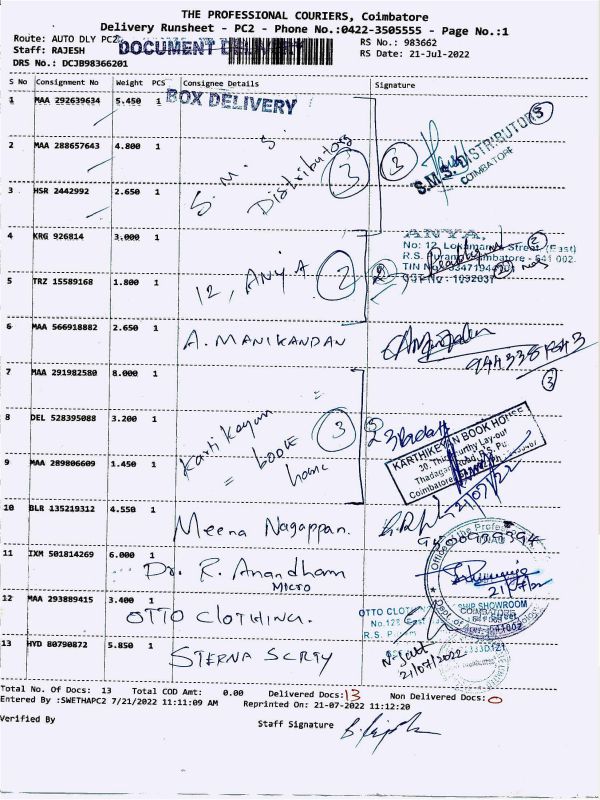 THE PROFESSIONAL COURIERS, Coimbatore
Delivery Runsheet - PC2 - Phone No.:0422-3505555 - Page No.:1
Route: AUTO DLY PC2 DOCUMENT DELIVERY RS No.: 983662
Staff: RAJESH RS Date: 21-Jul-2022
DRS No.: DCJB98366201
S No Consignment No Weight PCS Consignee Details Signature
1 MAA 292639634 5.450 1 BOX DELIVERY
2 MAA 288657643 4.800 1 S. M. S. Distributors 3 3 S.M.S. DISTRIBUTORS COIMBATORE 3
3 HSR 2442992 2.650 1
4 KRG 926814 3.000 1 ANYA.
No: 12, Street, (East)
R.S. Puram, Coimbatore - 641 002.
TIN No
CST No - 1032037
5 TRZ 15589168 1.800 1 12, ANYA 2 2
6 MAA 566918882 2.650 1 A. MANIKANDAN
7 MAA 291982580 8.000 1 3
8 DEL 528395088 3.200 1 Karthikeyan = book home 3 KARTHIKEYAN BOOK HOUSE
Lay-out
Coimbatore
9 MAA 289806609 1.450 1 21/07/22
10 BLR 135219312 4.550 1 Meena Nagappan.
11 IXM 501814269 6.000 1 Dr. R. Anandham MICRO
12 MAA 293889415 3.400 1 OTTO CLOTHING. OTTO SHOWROOM
No.128 East
R.S.
13 HYD 80790872 5.850 1 STERNA SCRTY 21/07/2022
Total No. Of Docs: 13 Total COD Amt: 0.00 Delivered Docs: 13 Non Delivered Docs: 0
Entered By :SWETHAPC2 7/21/2022 11:11:09 AM Reprinted On: 21-07-2022 11:12:20
Verified By Staff Signature